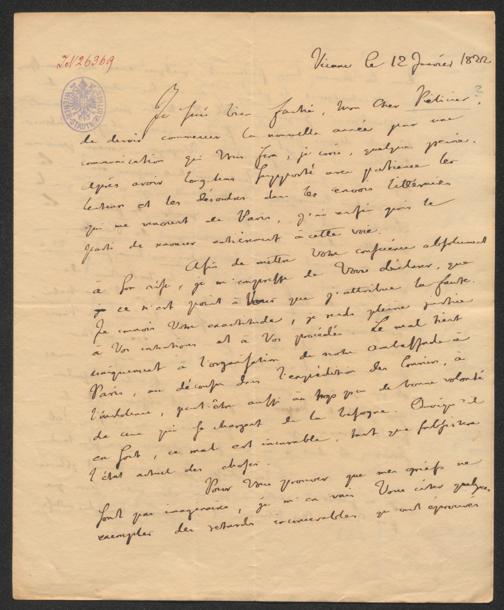 IN 26369
Vienne le 12 Janvier 1822
?
Je suis bien faché, mon Cher Pélicier,
de devoir commencer la nouvelle année par une
communication qui Vous fera, je crois, quelque peine.
Après avoir longtems supporté avec patience les
lenteurs et les désordres dans les envois littéraires
qui me viennent de Paris, j'ai enfin pris le
parti de renoncer entièrement à cette voie.
Afin de mettre Votre conscience absolument
à son aise, je m'empresse de Vous déclarer, que
ce n'est point à Vous que j'attribue la faute.
Je connois Votre exactitude, je rends pleine justice
à Vos intentions et à Vos procédés. Le mal tient
uniquement à l'organisation de notre Ambassade à
Paris, au désordre dans l'expédition des Couriers, à
l'indolence, peut-être aussi au trop peu de bonne volonté
de ceux qui se chargent de la besogne. Quoiqu'il
en soit, ce mal est incurable, tant que subsistera
l'état actuel des choses.
Pour Vous prouver que mes griefs ne
sont pas imaginaires, je m'en vais Vous citer quelques
exemples des retards inconcevables qu'ont éprouvés